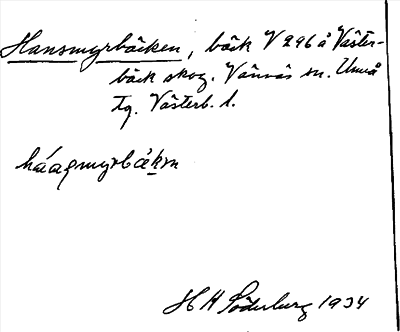 Hansmyrbäcken, bäck V 296 å Väster-
bäck skog. Vännäs sn. Umeå
tg. Västerb. l.
H H Söderburg 1934